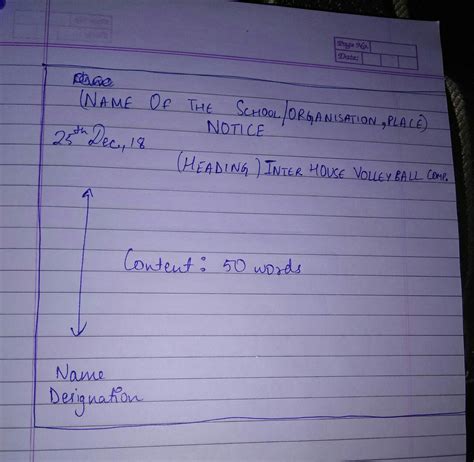 Page No.
Date:
(NAME OF THE SCHOOL/ORGANISATION, PLACE)
NOTICE
25th Dec, 18
(HEADING) INTER HOUSE VOLLEYBALL COMP.
Content: 50 words
Name
Designation